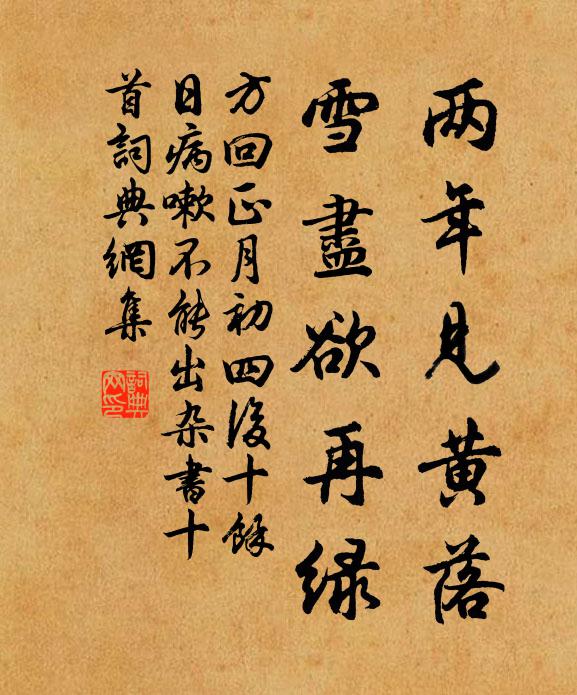 两年見黄落
雪盡欲再緑
方回正月初四後十餘
日病嗽不能出杂書十
首詞典網集
詞典
网印